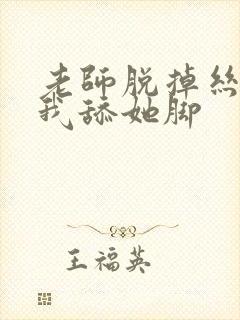 老師脱掉絲
我舔她脚
王福英